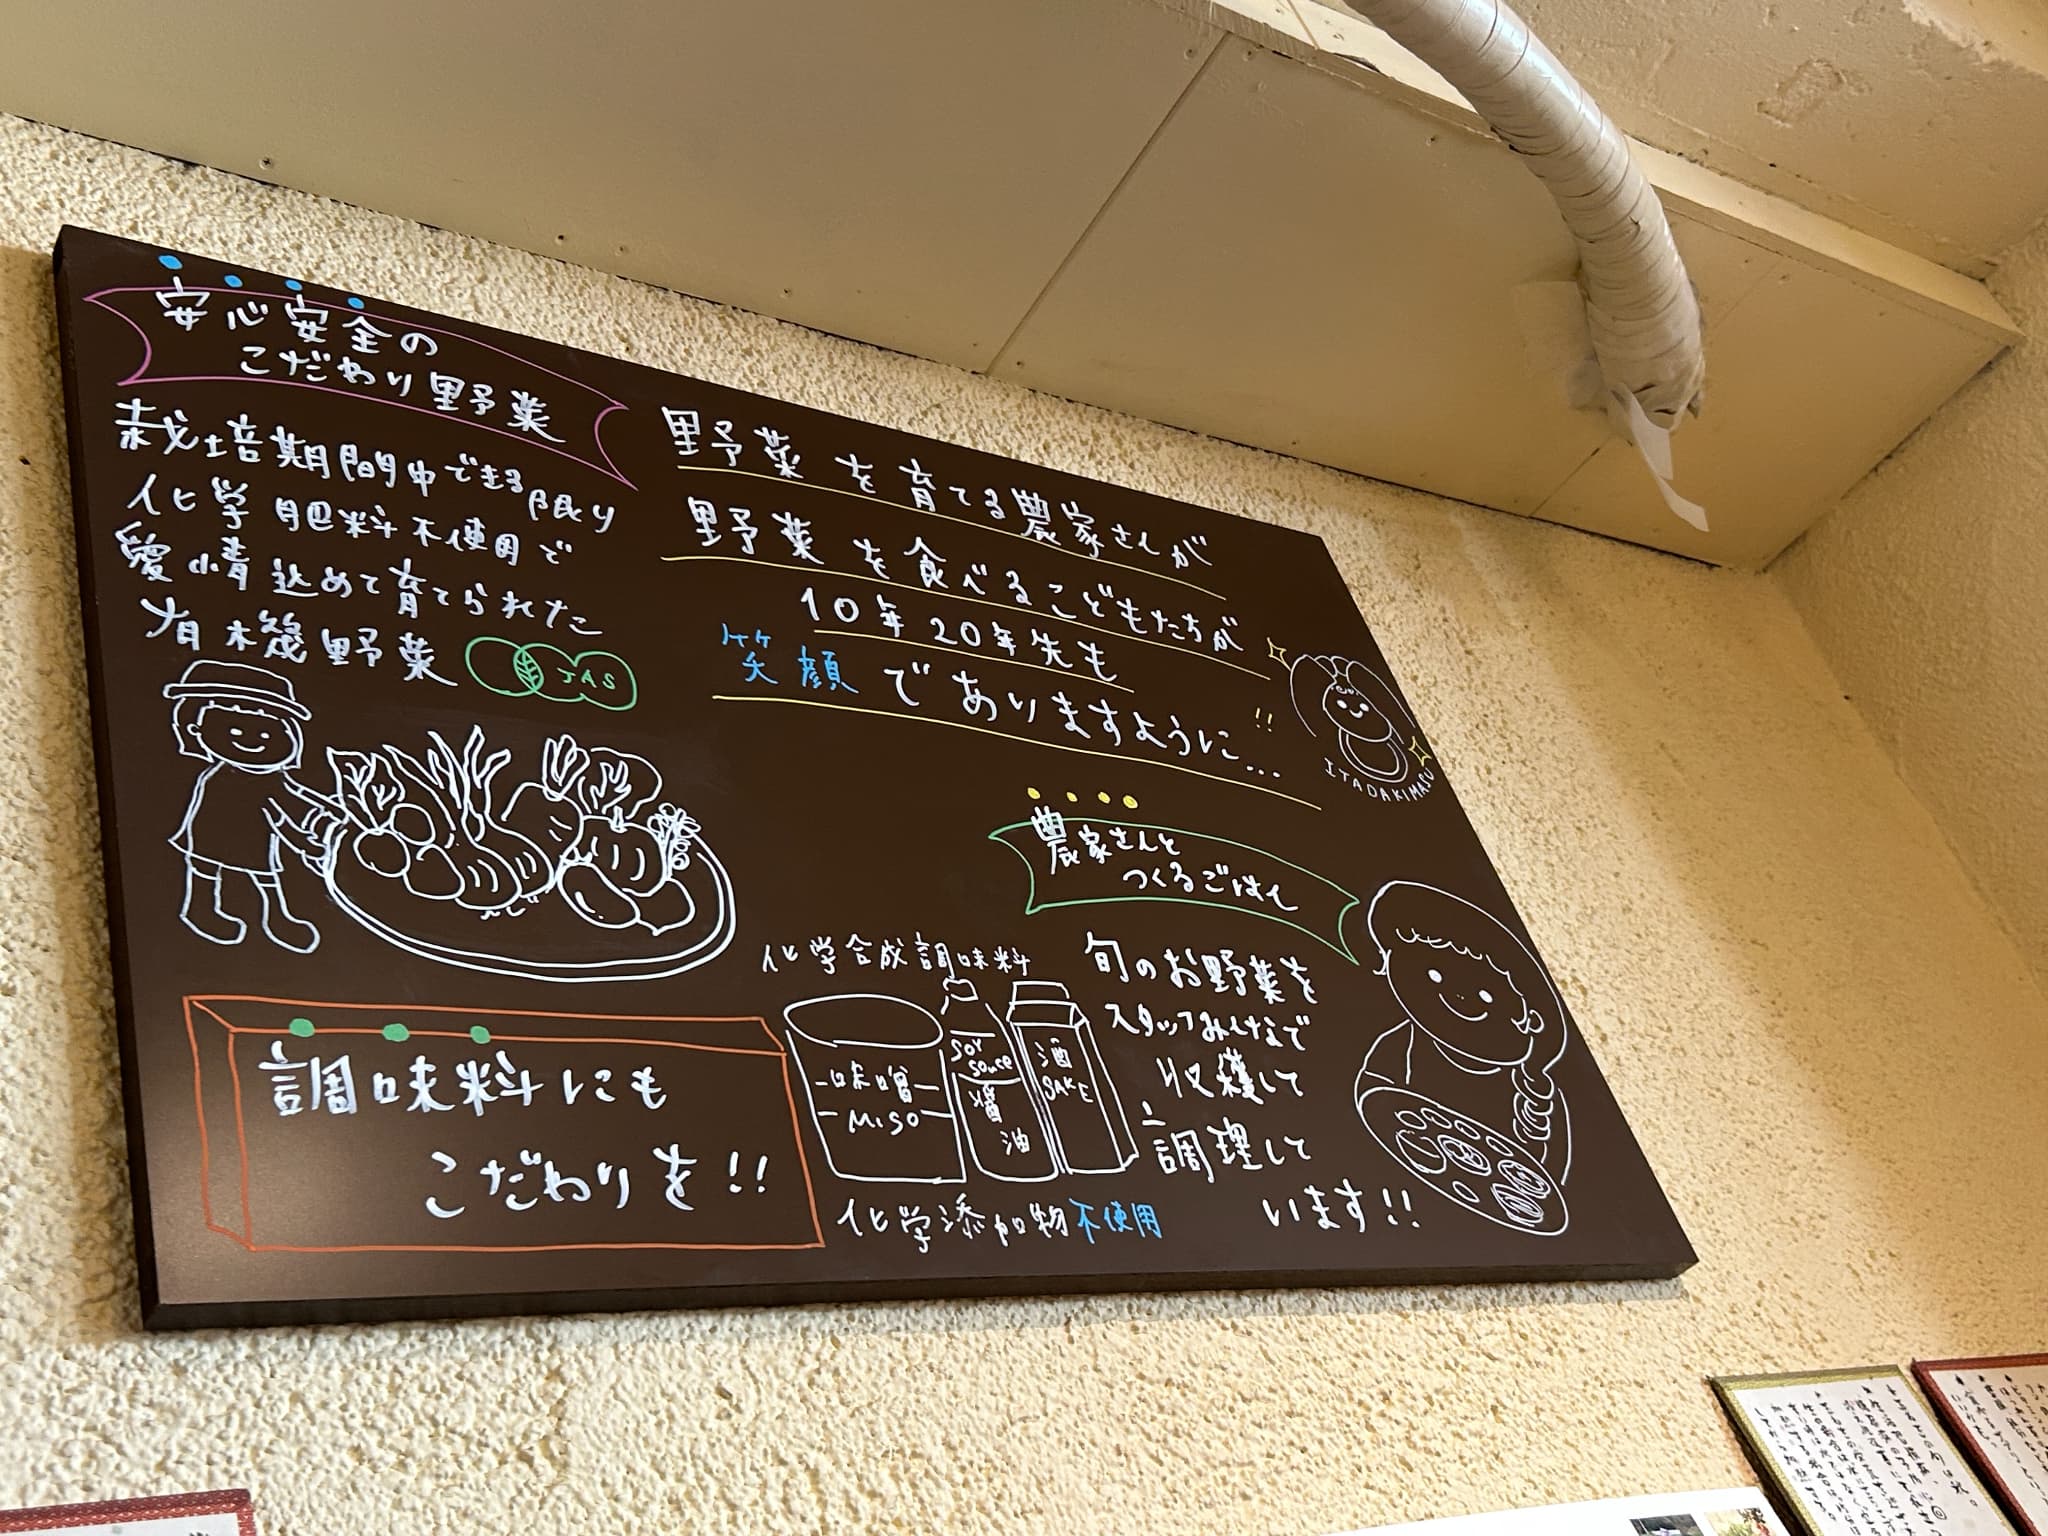 安心安全の
こだわり野菜
栽培期間中できる限り
化学肥料不使用で
愛情込めて育てられた
有機野菜
JAS
野菜を育てる農家さんが
野菜を食べるこどもたちが
10年20年先も
笑顔でありますように…!!
ITADAKIMASU
農家さんと
つくるごはん
旬のお野菜を
スタッフみんなで
収穫して
調理して
います!!
調味料にも
こだわりを!!
化学合成調味料
味噌
MISO
SOY
Souce
醤
油
酒
SAKE
化学添加物不使用